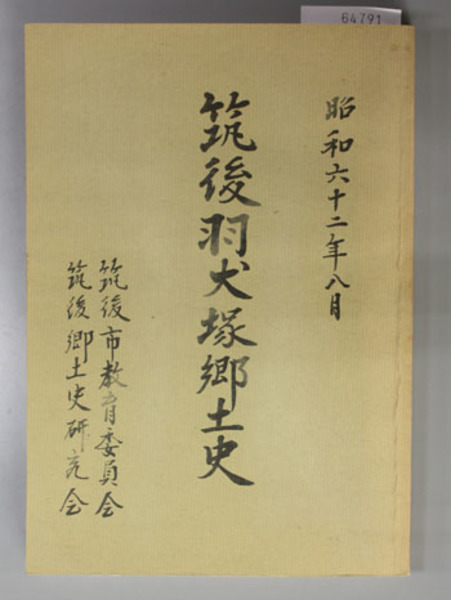 64791
昭和六十二年八月
筑後羽犬塚郷土史
筑後市教育委員会
筑後郷土史研究会